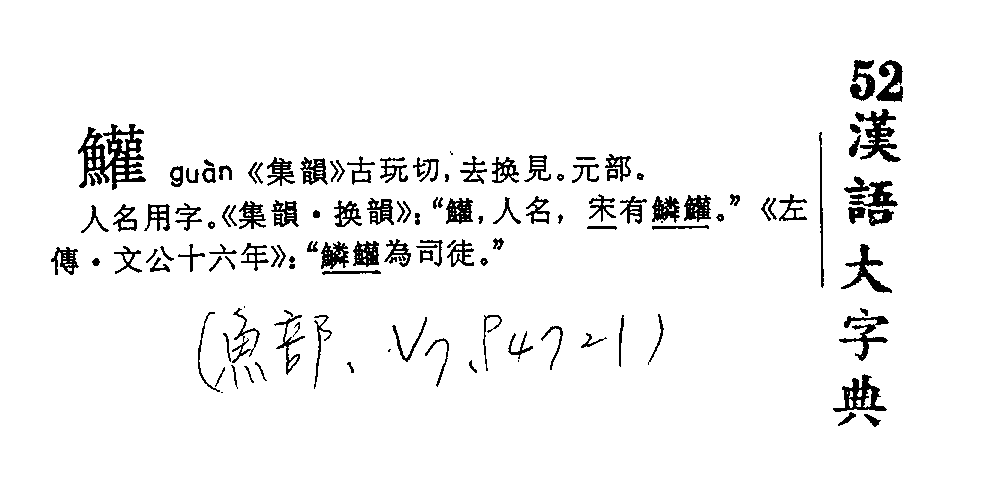 52
漢語大字典
鱹 guàn《集韻》古玩切，去換見。元部。
人名用字。《集韻·換韻》：“鱹，人名，宋有鱗鱹。”《左
傳·文公十六年》：“鱗鱹為司徒。”
(魚部、V7、P4721)